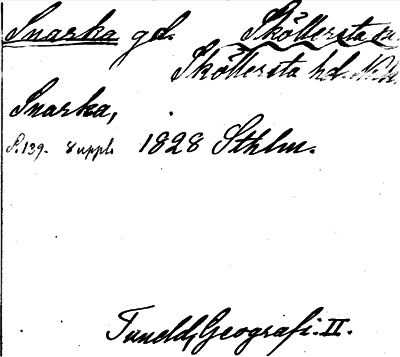 Snarka gd. Sköllersta sn.
Sköllersta hd. Nke.
Snarka,
S. 139. 8 uppl. 1828 Sthlm.
Tuneld, Geografi. II.